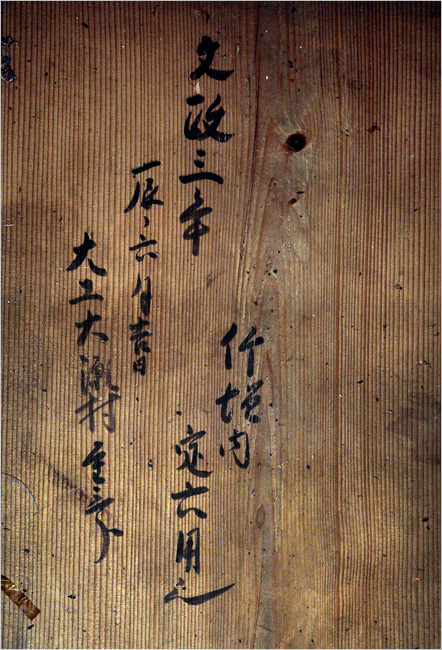 文政三年
辰ノ六月吉日
大工大瀬村
内
定六用之